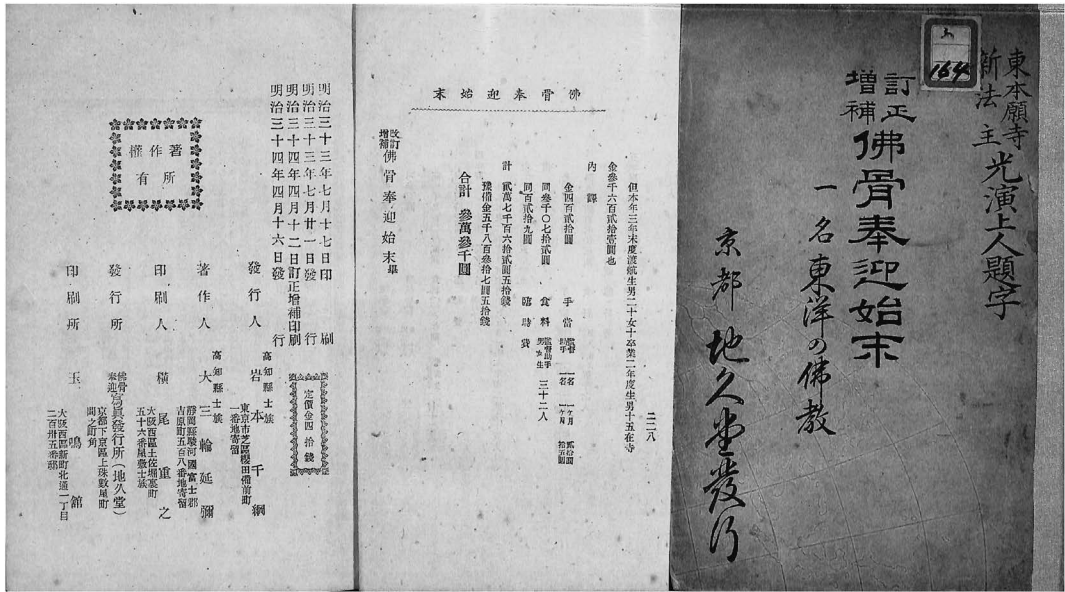 東本願寺
新法主
光演上人題字
訂正
増補
佛骨奉迎始末
一名東洋の佛教
京都 地久堂發行
164
佛骨奉迎始末
二二八
但本年三年末度渡航生男二十女十卒業二年度生男十五在寺
金參千六百貳拾壹圓也
內譯
金四百貳拾圓 手當 監督 一名 一ヶ月 貳拾圓
助手 一名 一ヶ月 拾五圓
同參千〇七拾貳圓 食料 監督助手 男女生 三十二人
同百貳拾九圓 臨時費
計 貳萬七千百六拾貳圓五拾錢
豫備金五千八百參拾七圓五拾錢
合計 參萬參千圓
改訂
增補
佛骨奉迎始末畢
明治三十三年七月十七日印刷
明治三十三年七月廿一日發行
明治三十四年四月十二日訂正增補印刷
明治三十四年四月十六日發行
著作
權所
有
定價金四拾錢
高知縣士族
發行人 岩本千綱
東京市芝區櫻田備前町
一番地寄留
高知縣士族
著作人 大三輪延彌
靜岡縣駿河國富士郡
吉原町五百八番地寄留
印刷人 橫尾重之
大阪西區土佐堀裏町
五十六番屋敷士族
發行所 佛骨奉迎寫眞發行所(地久堂)
京都下京區上珠數屋町
間之町角
印刷所 玉鳴舘
大阪西區新町北通一丁目
二百卅五番邸